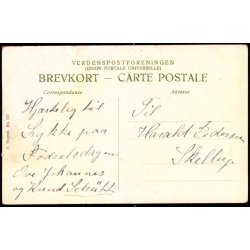 VERDENSPOSTFORENINGEN
(UNION POSTALE UNIVERSELLE)
BREVKORT – CARTE POSTALE
Correspondance
Adresse
Hjertelig til
Lykke paa
Fødselsdagen
Ove Johannes
og Knud Schütt
Til
Harald Pedersen
Skelby